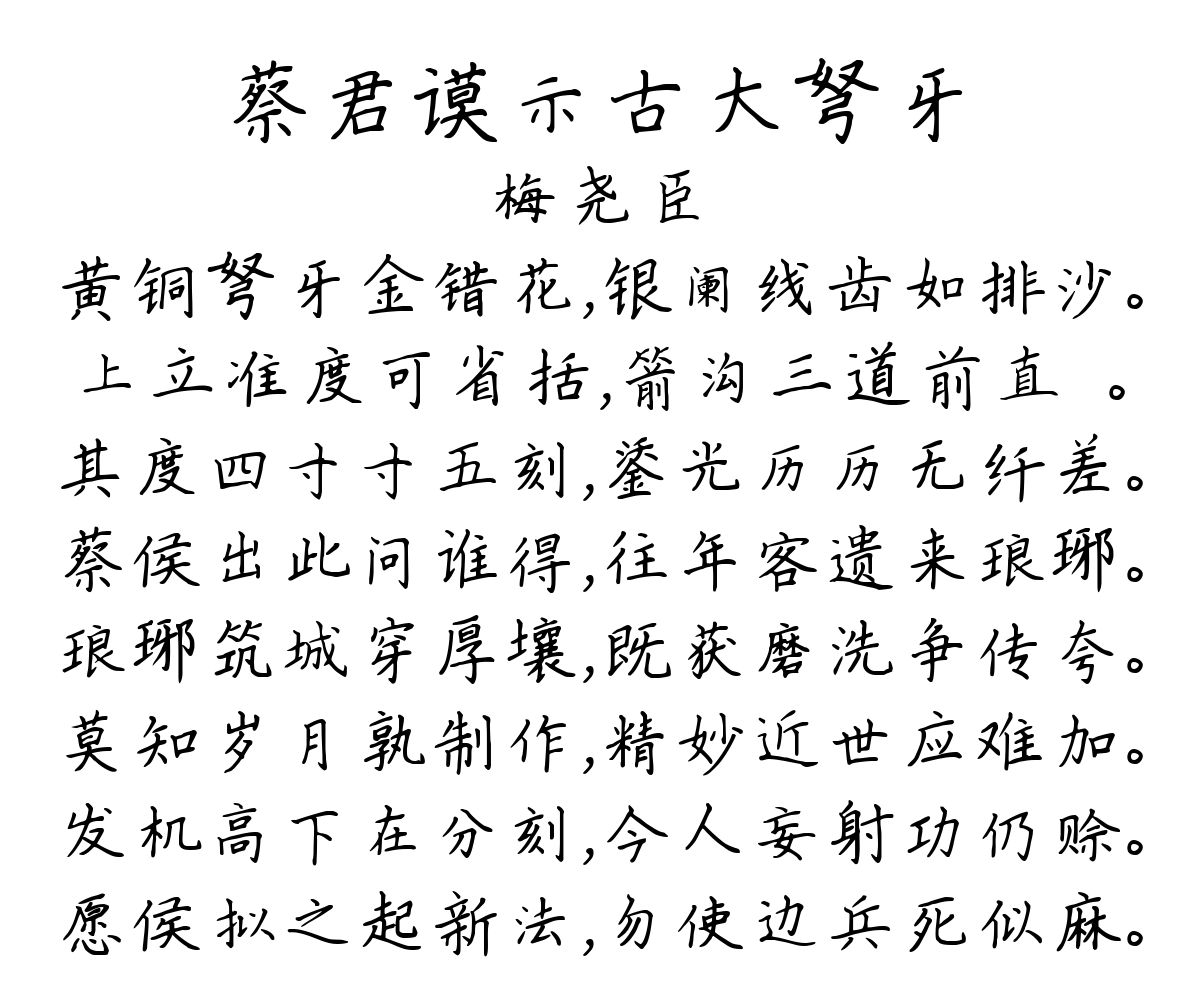 蔡君谟示古大弩牙
梅尧臣
黄铜弩牙金错花,银阑线齿如排沙。
上立准度可省括,箭沟三道前直 。
其度四寸寸五刻,鋈光历历无纤差。
蔡侯出此问谁得,往年客遗来琅琊。
琅琊筑城穿厚壤,既获磨洗争传夸。
莫知岁月孰制作,精妙近世应难加。
发机高下在分刻,今人妄射功仍赊。
愿侯拟之起新法,勿使边兵死似麻。